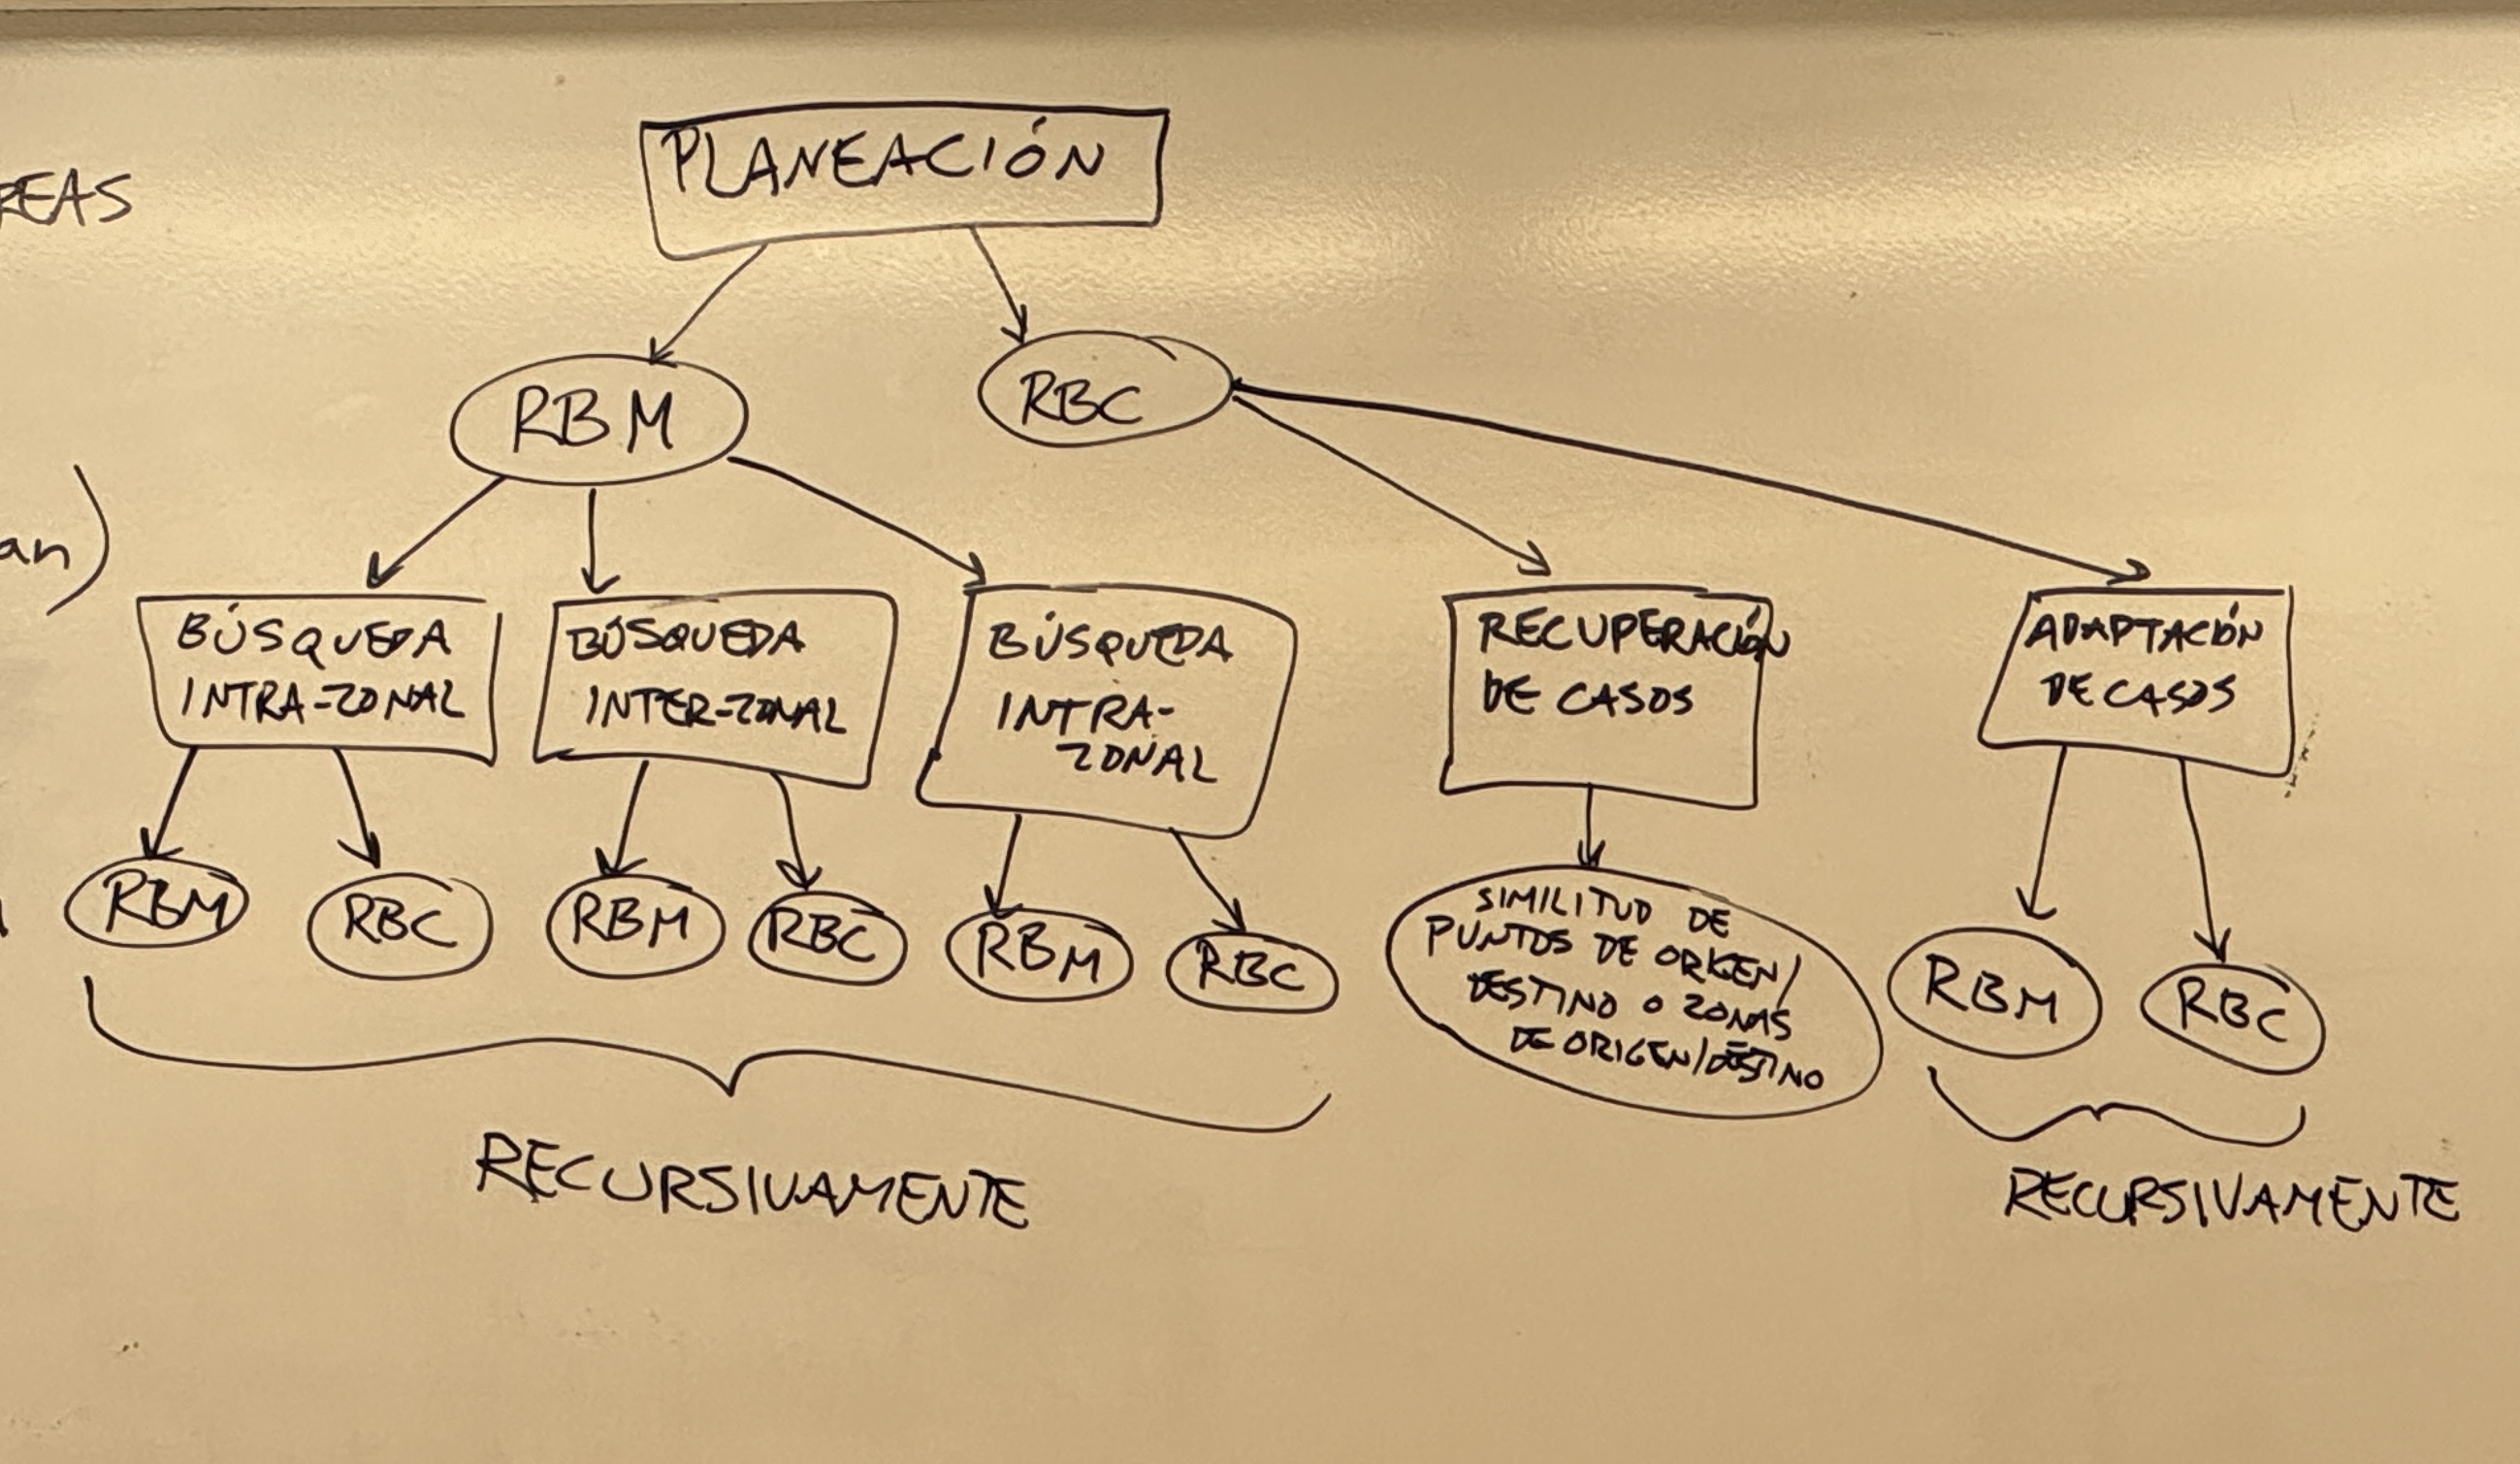 PLANEACIÓN
REAS
RBM
RBC
an)
BÚSQUEDA
INTRA-ZONAL
BÚSQUEDA
INTER-ZONAL
BÚSQUEDA
INTRA-
ZONAL
RECUPERACIÓN
DE CASOS
ADAPTACIÓN
DE CASOS
RBM
RBC
RBM
RBC
RBM
RBC
SIMILITUD DE
PUNTOS DE ORIGEN/
DESTINO O ZONAS
DE ORIGEN/DESTINO
RBM
RBC
RECURSIVAMENTE
RECURSIVAMENTE